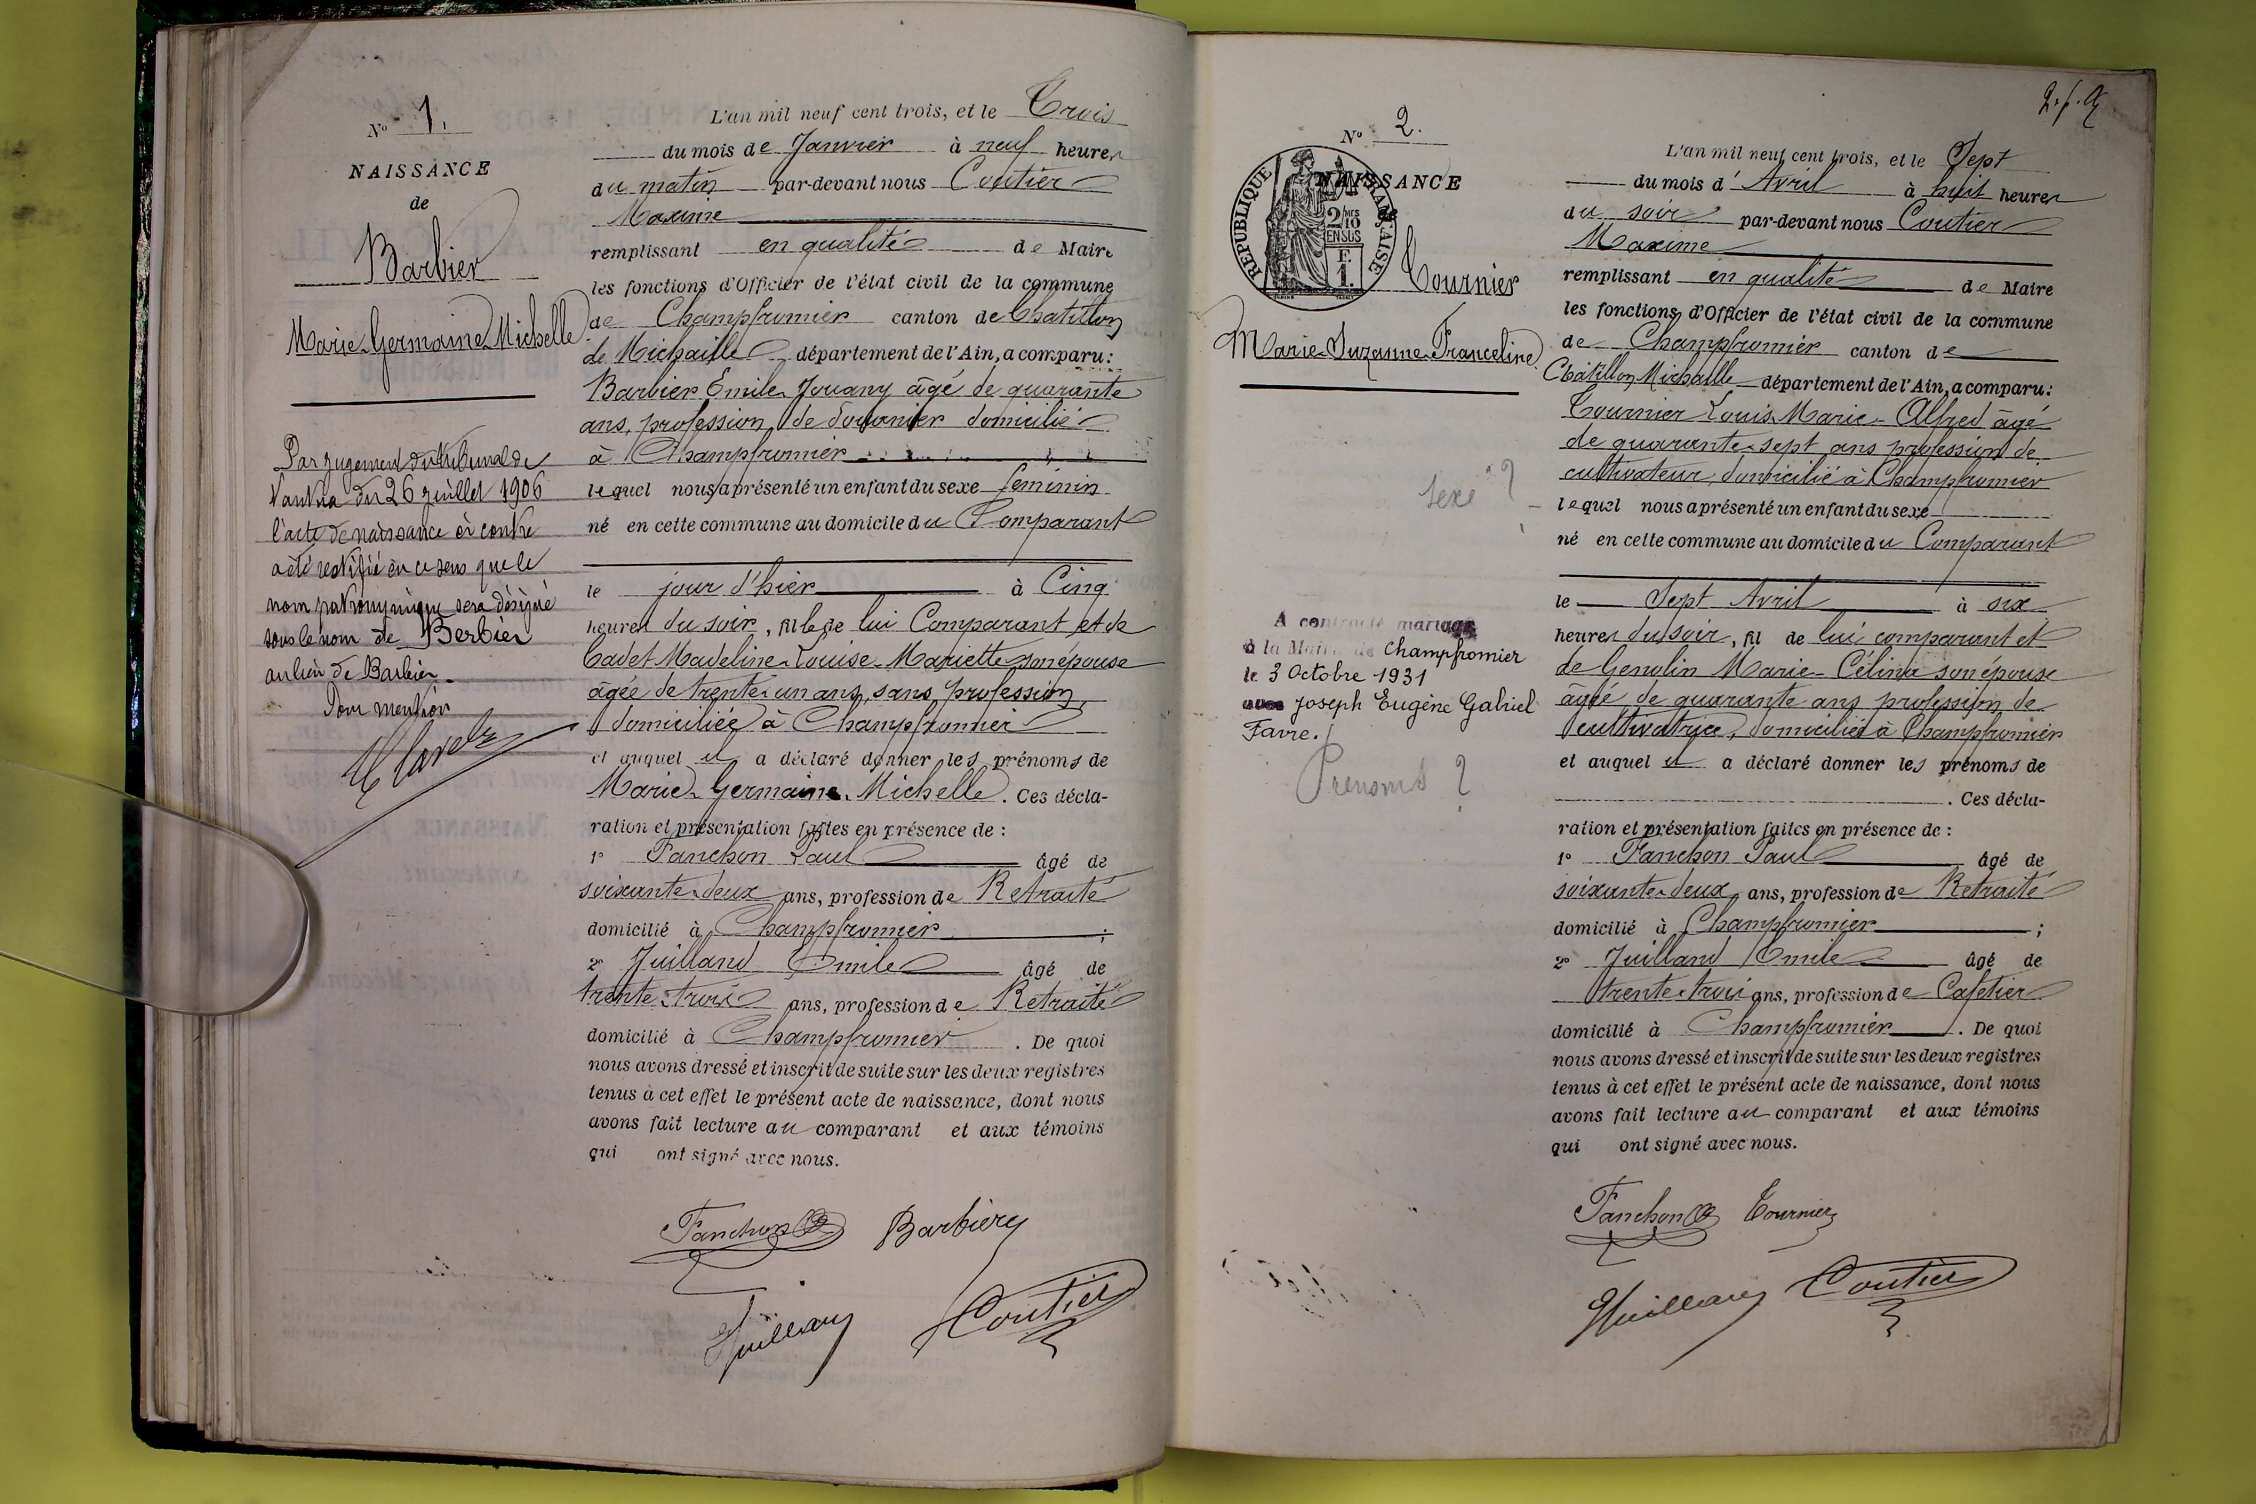 Nº 1.
NAISSANCE
de
Barbier
Marie Germaine Michelle
Par jugement du tribunal de
Nantua du 26 juillet 1906
l'acte de naissance ci contre
a été rectifié en ce sens que le
nom patronymique sera désigné
sous le nom de Berbier
au lieu de Barbier.
Pour mention
L'an mil neuf cent trois, et le Trois
du mois de Janvier à neuf heures
du matin par-devant nous Coutier
Maxime
remplissant en qualité de Maire
les fonctions d'Officier de l'état civil de la commune
de Champfromier canton de Chatillon
de Michaille département de l'Ain, a comparu:
Barbier Emile Jouany âgé de quarante
ans, profession de domicilié
à Champfromier
lequel nous a présenté un enfant du sexe féminin
né en cette commune au domicile du Comparant
le jour d'hier à Cinq
heures du soir, fille de lui Comparant et de
Cadet Madeline Louise Mariette son épouse
âgée de trente un ans, sans profession,
domiciliée à Champfromier
et auquel il a déclaré donner les prénoms de
Marie Germaine Michelle. Ces décla-
ration et présentation faites en présence de :
1º Fanchon Paul âgé de
soixante deux ans, profession de Retraité
domicilié à Champfromier ;
2º Juilland Emile âgé de
trente trois ans, profession de Retraité
domicilié à Champfromier. De quoi
nous avons dressé et inscrit de suite sur les deux registres
tenus à cet effet le présent acte de naissance, dont nous
avons fait lecture au comparant et aux témoins
qui ont signé avec nous.
Fanchon Barbier
Juilland Coutier
2. f.
Nº 2.
NAISSANCE
RÉPUBLIQUE FRANÇAISE
2/10
EN SUS
F.
1.
Tournier
Marie Suzanne Franceline
sexe ?
A contracté mariage
à la Mairie de Champfromier
le 3 Octobre 1931
avec Joseph Eugène Gabriel
Favre.
Prénoms ?
L'an mil neuf cent trois, et le Sept
du mois d' Avril à huit heures
du soir par-devant nous Coutier
Maxime
remplissant en qualité de Maire
les fonctions d'Officier de l'état civil de la commune
de Champfromier canton de
Châtillon Michaille département de l'Ain, a comparu:
Tournier Louis Marie Alfred âgé
de quarante sept ans profession de
cultivateur, domicilié à Champfromier
lequel nous a présenté un enfant du sexe
né en cette commune au domicile du Comparant
le Sept Avril à six
heures du soir, fil de lui comparant et
de Genolin Marie Célina son épouse
âgé de quarante ans profession de
cultivatrice, domiciliée à Champfromier
et auquel il a déclaré donner les prénoms de
. Ces décla-
ration et présentation faites en présence de :
1º Fanchon Paul âgé de
soixante deux ans, profession de Retraité
domicilié à Champfromier ;
2º Juilland Emile âgé de
trente trois ans, profession de Cafetier
domicilié à Champfromier. De quoi
nous avons dressé et inscrit de suite sur les deux registres
tenus à cet effet le présent acte de naissance, dont nous
avons fait lecture au comparant et aux témoins
qui ont signé avec nous.
Fanchon Tournier
Juilland Coutier